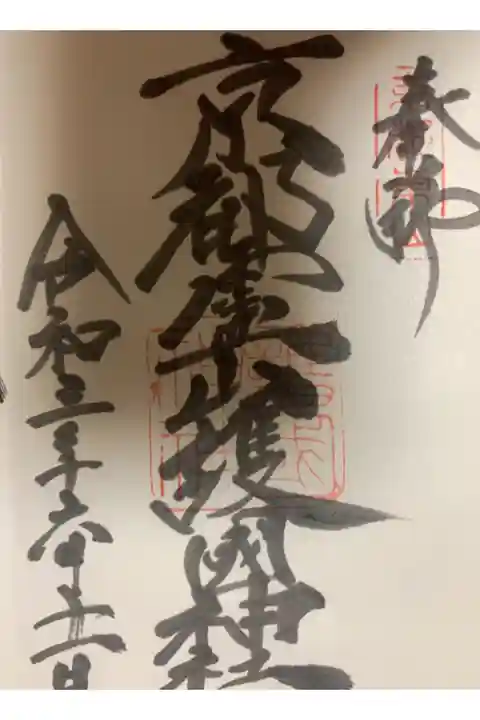 奉拝
京都霊山護國神社
令和三年六月日